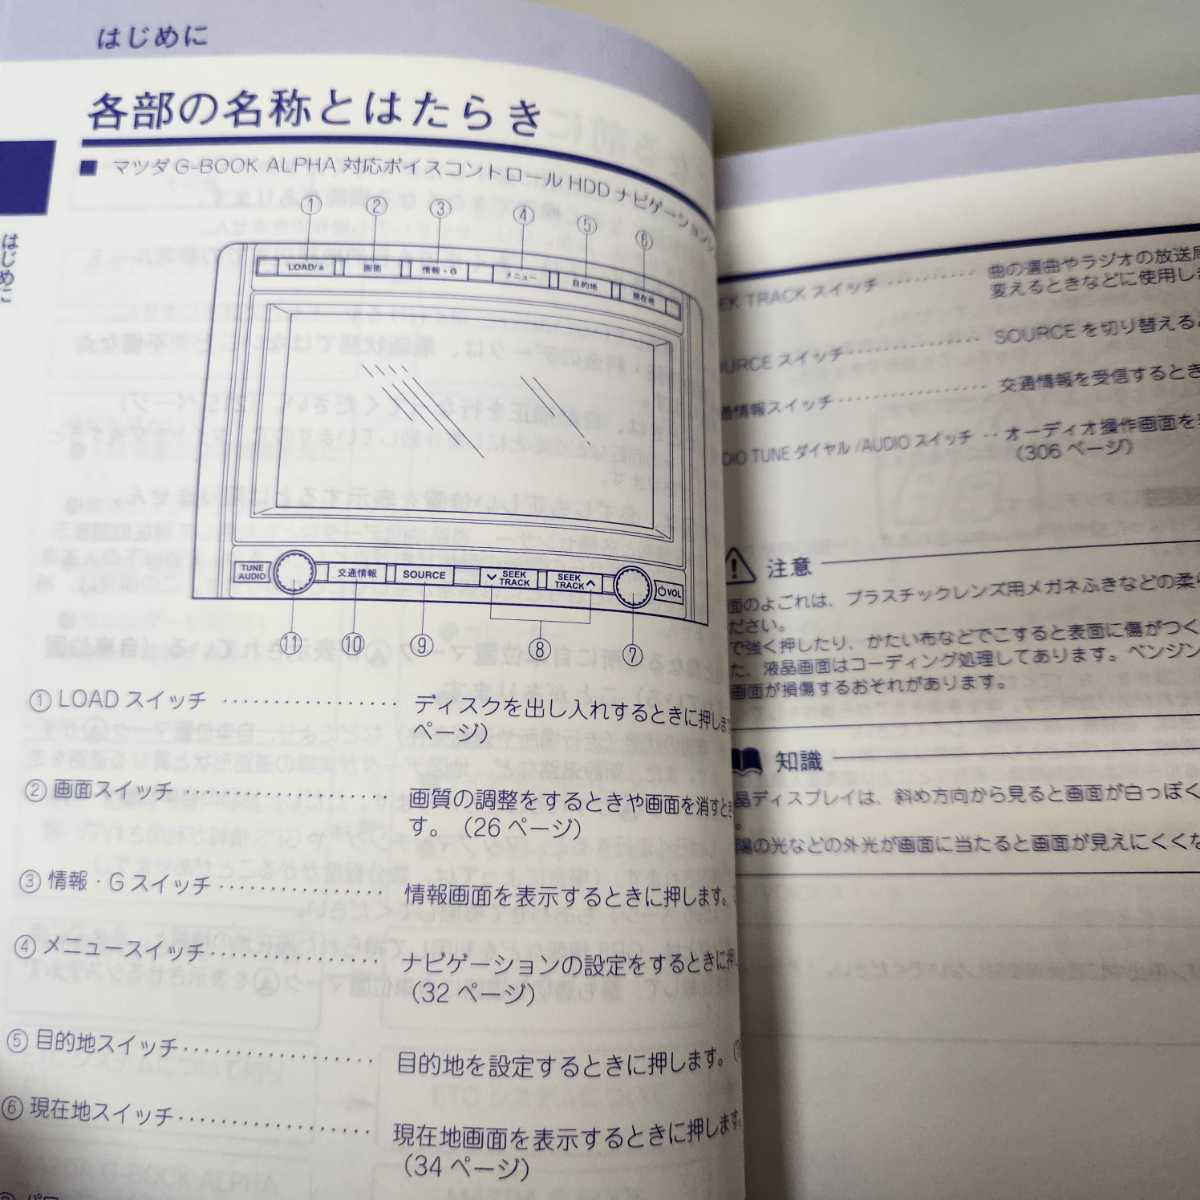 はじめに
各部の名称とはたらき
■ マツダ G-BOOK ALPHA 対応ボイスコントロール HDD ナビゲーション
はじめに
① ② ③ ④ ⑤ ⑥
LOAD/▲ 画面 情報・G メニュー 目的地 現在地
TUNE AUDIO 交通情報 SOURCE SEEK TRACK SEEK TRACK VOL
⑪ ⑩ ⑨ ⑧ ⑦
① LOAD スイッチ ················· ディスクを出し入れするときに押しま
ページ）
② 画面スイッチ ···················· 画質の調整をするときや画面を消すとき
す。（26 ページ）
③ 情報・G スイッチ ················ 情報画面を表示するときに押します。
④ メニュースイッチ ················· ナビゲーションの設定をするときに押
（32 ページ）
⑤ 目的地スイッチ ··················· 目的地を設定するときに押します。（
⑥ 現在地スイッチ ··················· 現在地画面を表示するときに押します
（34 ページ）
EK TRACK スイッチ ·········· 曲の選曲やラジオの放送局
変えるときなどに使用しま
URCE スイッチ ·············· SOURCE を切り替えると
情報スイッチ ················ 交通情報を受信するとき
DIO TUNE ダイヤル /AUDIO スイッチ ·· オーディオ操作画面を
（306 ページ）
注意
面のよごれは、プラスチックレンズ用メガネふきなどの柔ら
ださい。
で強く押したり、かたい布などでこすると表面に傷がつく
た、液晶画面はコーディング処理してあります。ベンジン
画面が損傷するおそれがあります。
知識
晶ディスプレイは、斜め方向から見ると画面が白っぽく
。
陽の光などの外光が画面に当たると画面が見えにくくな